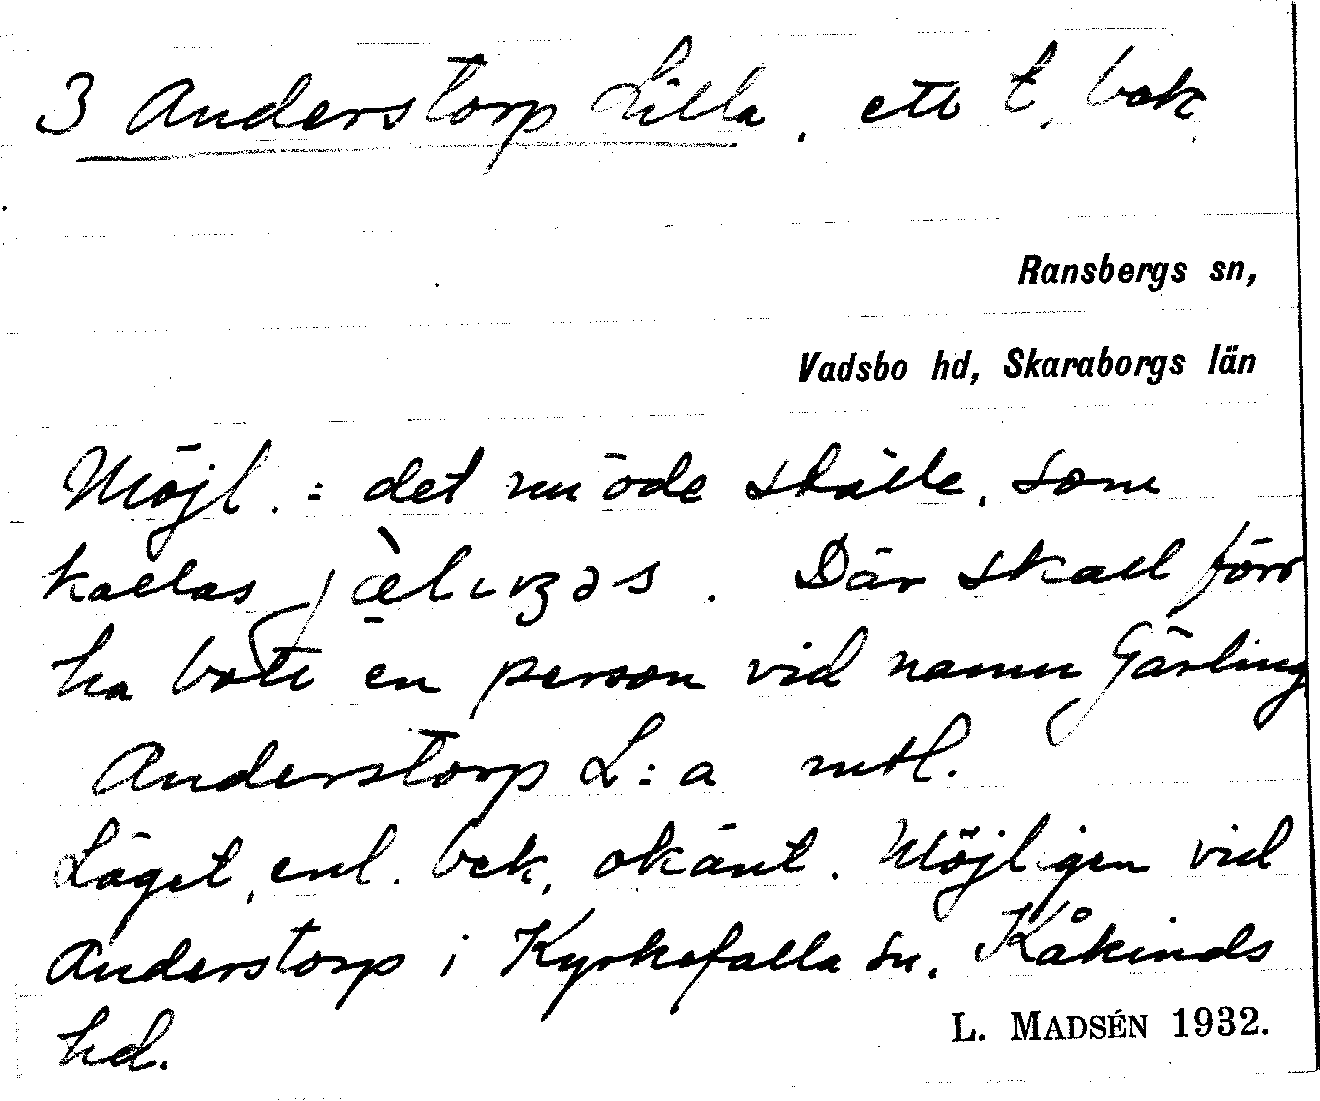 3 Anderstorp Lilla, ett t. bok.
Ransbergs sn,
Vadsbo hd, Skaraborgs län
Möjl. = det nu öde ställe, som
kallas. Där skall förr
ha bott en person vid namn Gärling
Anderstorp L:a mtl.
Läget, enl. bek, okänt. Möjligen vid
Anderstorp i Kyrkefalla sn, Kåkinds
hd.
L. MADSÉN 1932.